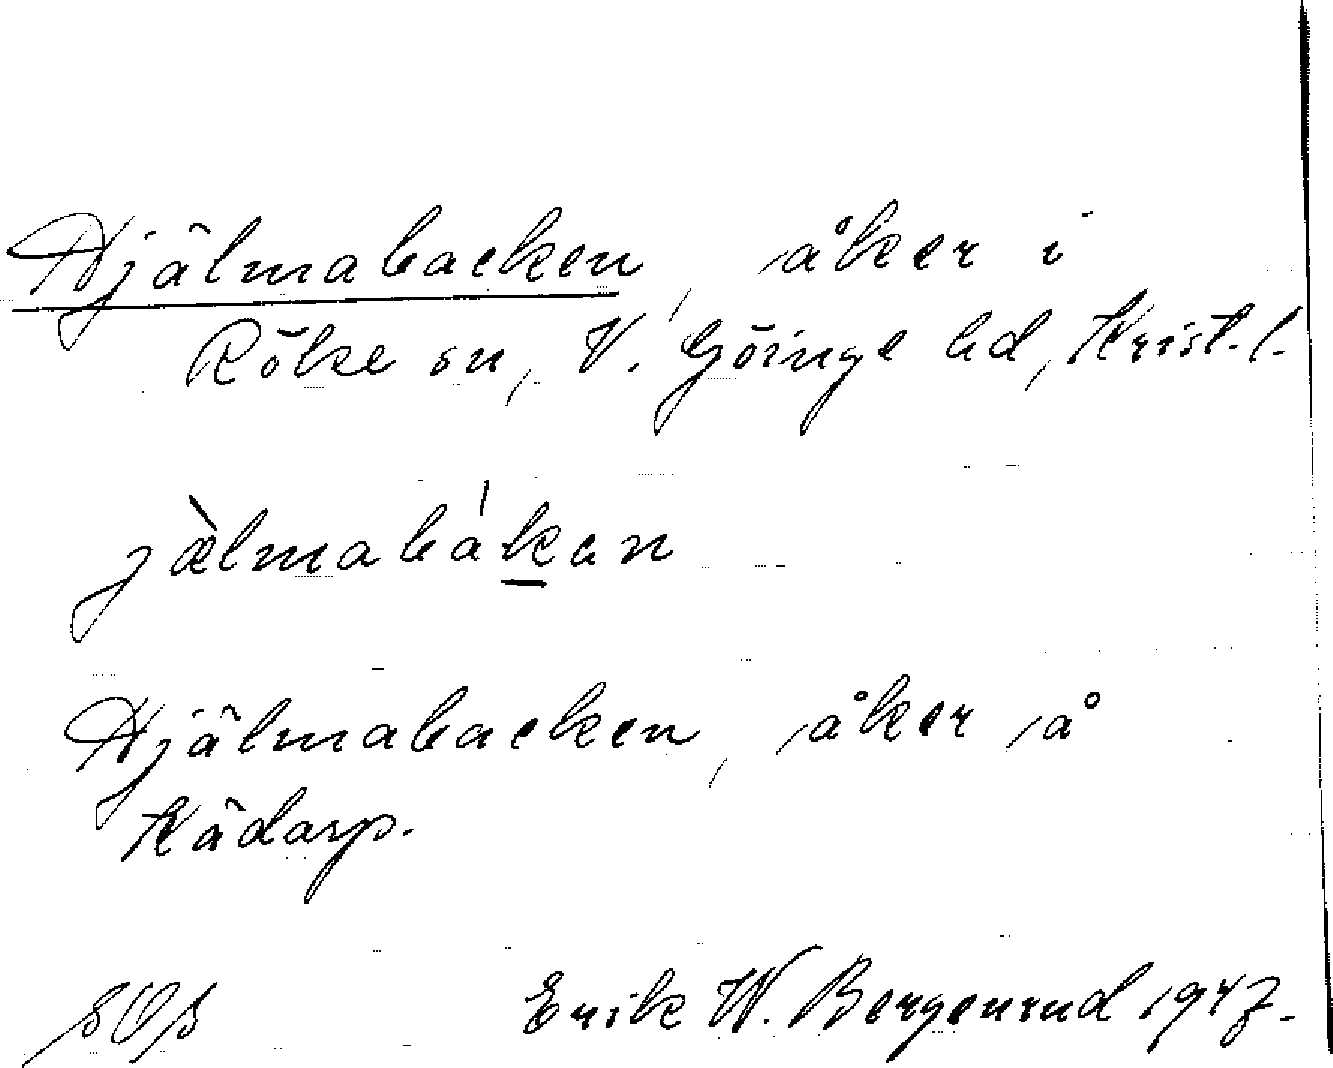 Hjälmabacken åker i
Röke sn, V. Göinge hd, Krist. l.
jæ̀lmabákan
Hjälmabacken, åker å
Kädarp.
Erik W. Bergenrud 1947.